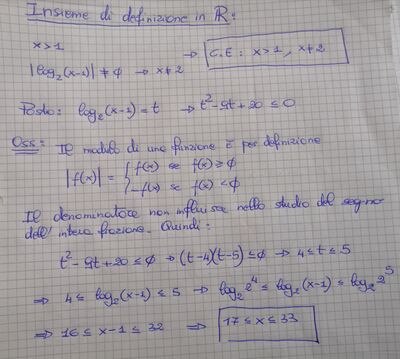 Insieme di definizione in R:
x>1 → C.E: x>1, x≠2
|log₂(x-1)| ≠ ∅ → x≠2
Posto: log₂(x-1)=t → t²-9t+20 ≤ 0
Oss: Il modulo di una funzione è per definizione
|f(x)| = { f(x) se f(x) ≥ ∅
-f(x) se f(x) < ∅
Il denominatore non influisce nello studio del segno
dell'intera frazione. Quindi:
t²-9t+20 ≤ ∅ → (t-4)(t-5) ≤ ∅ → 4 ≤ t ≤ 5
⇒ 4 ≤ log₂(x-1) ≤ 5 → log₂2⁴ ≤ log₂(x-1) ≤ log₂2⁵
⇒ 16 ≤ x-1 ≤ 32 ⇒ 17 ≤ x ≤ 33